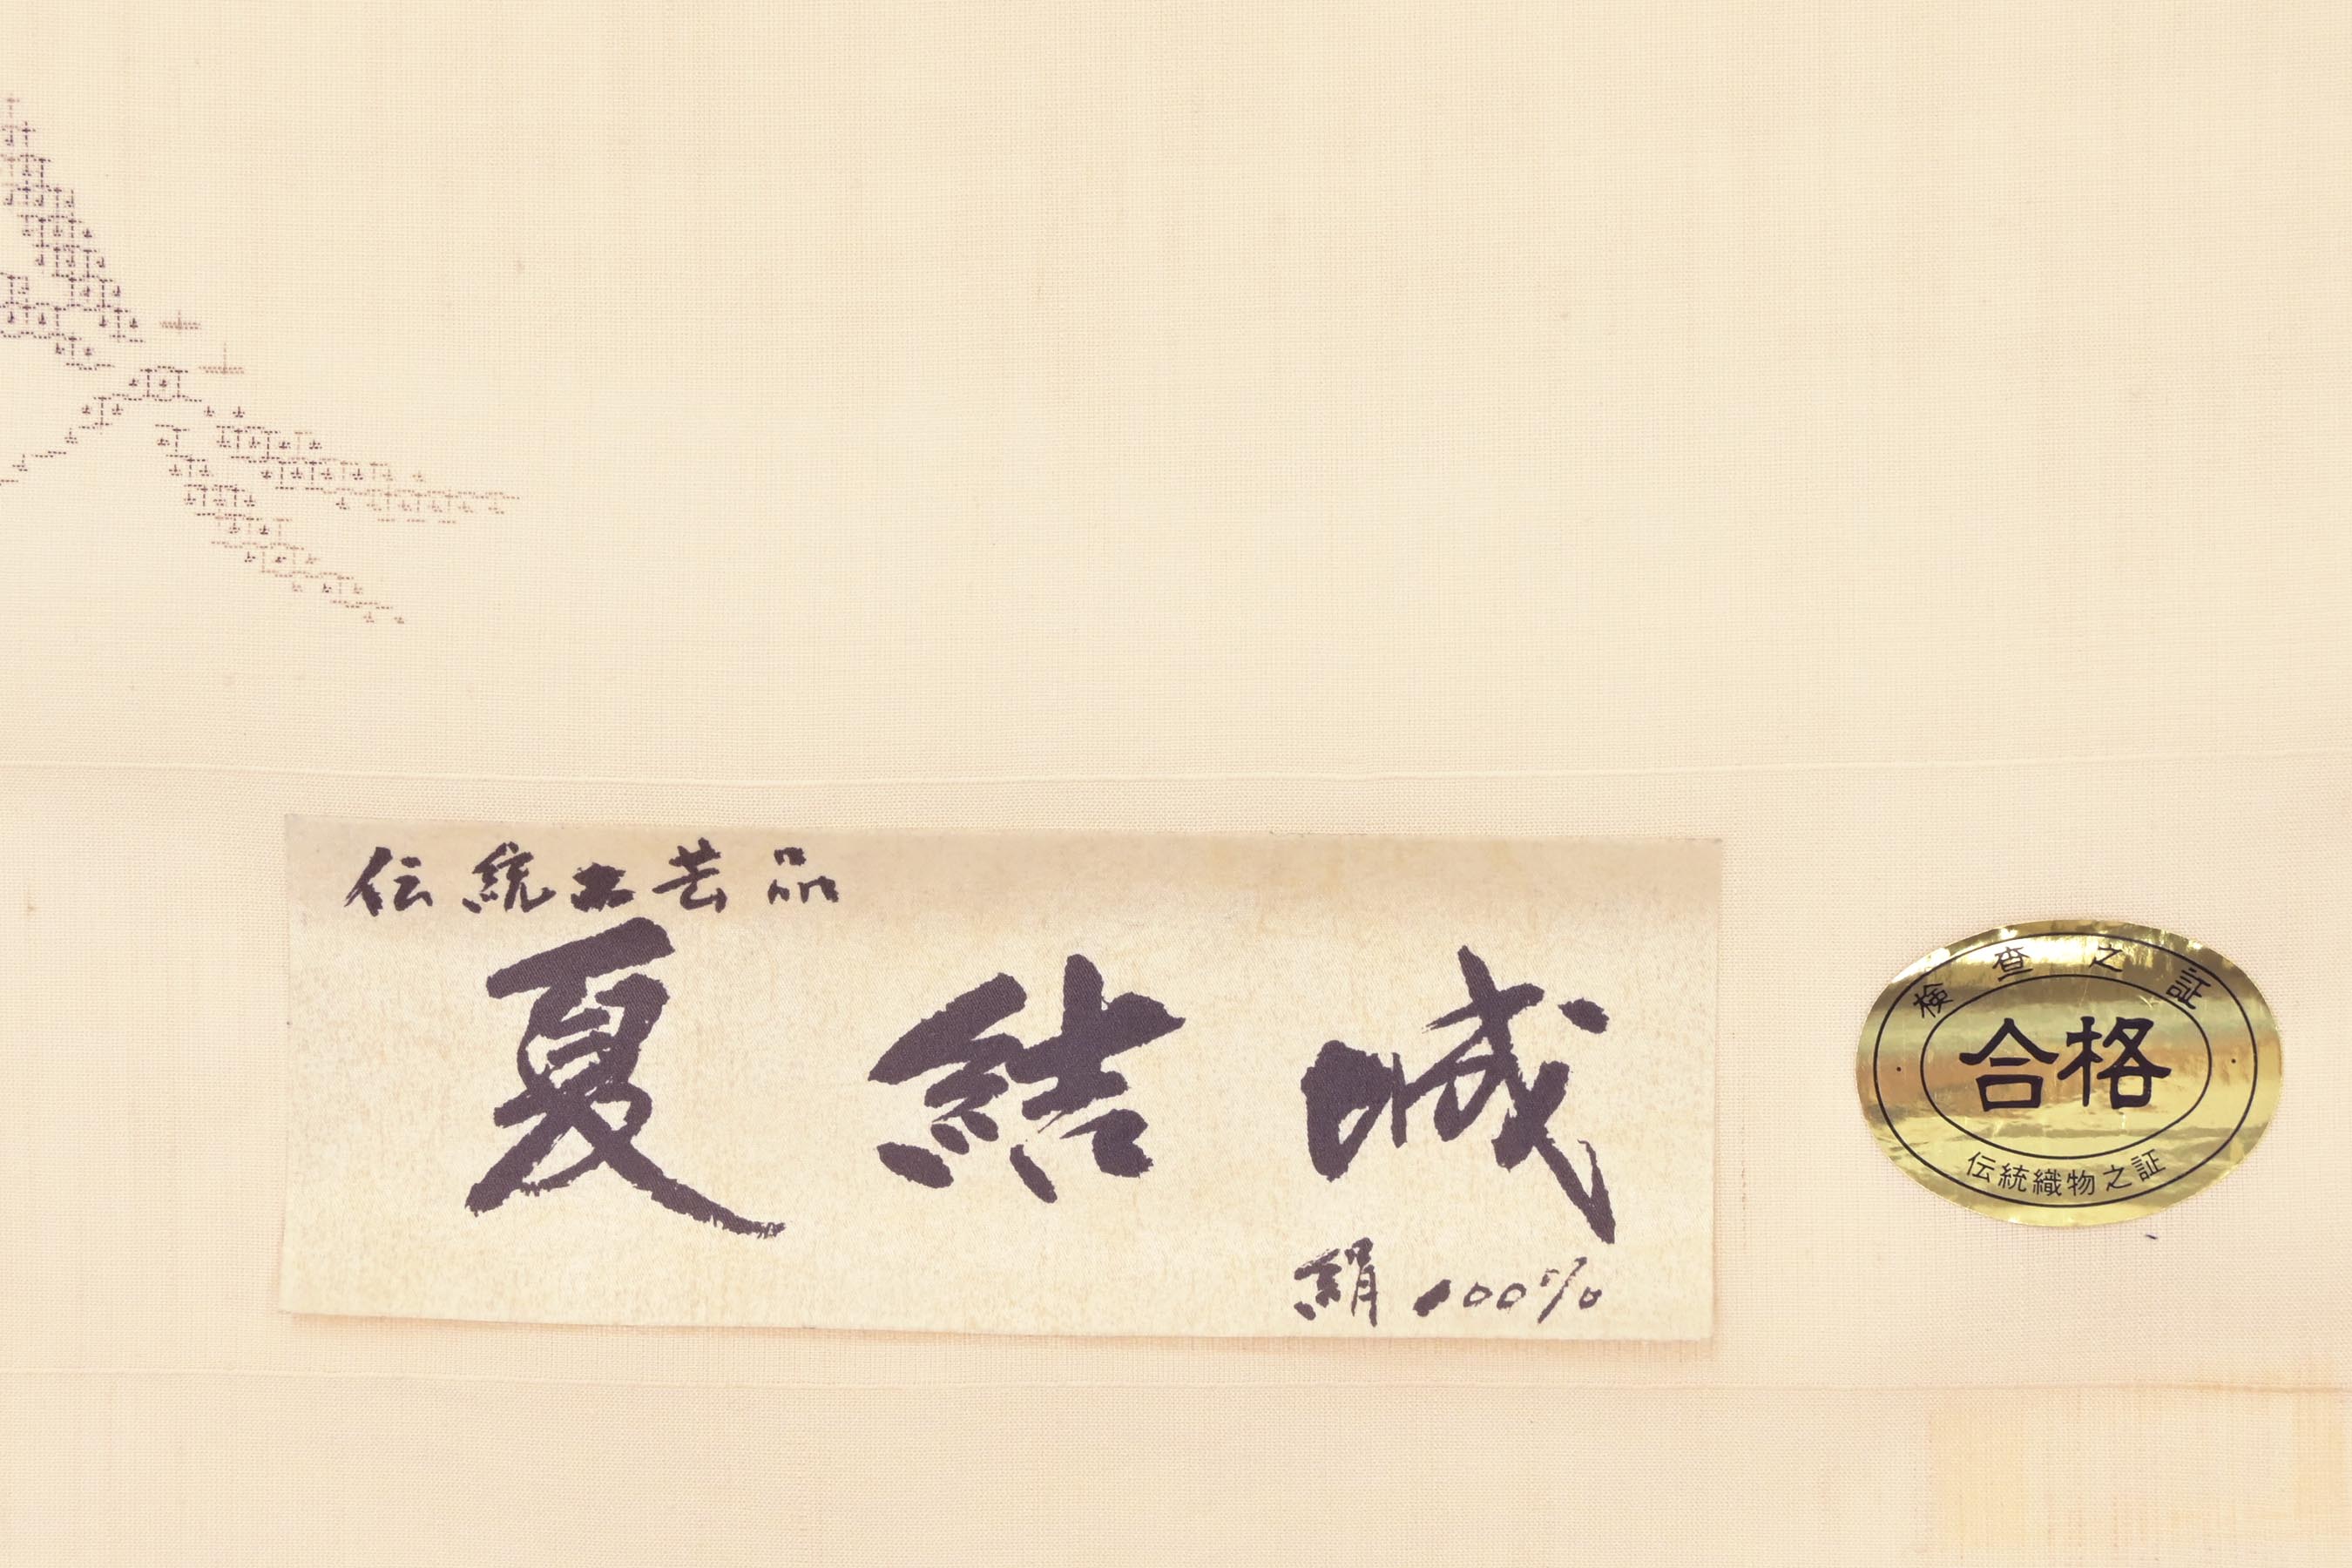 伝統工芸品
夏結城
絹100%
検査之証
合格
伝統織物之証